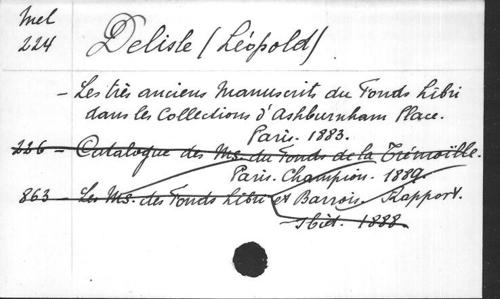 Mel
224
Delisle (Léopold)
- Les très anciens Manuscrits du Fonds Libri
dans les Collections d'Ashburnham Place.
Paris. 1883.
226 - Catalogue des Ms. du Fonds de la Trémoille.
Paris. Champion. 1889.
863 - Les Ms. des Fonds Libri et Barrois. Rapport.
Ibid. 1888.